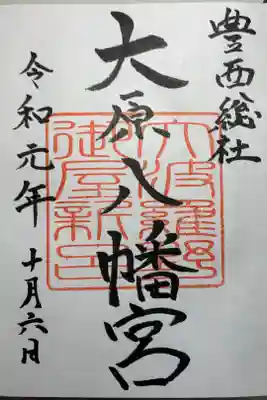 豊西総社
大原八幡宮
令和元年
十月六日